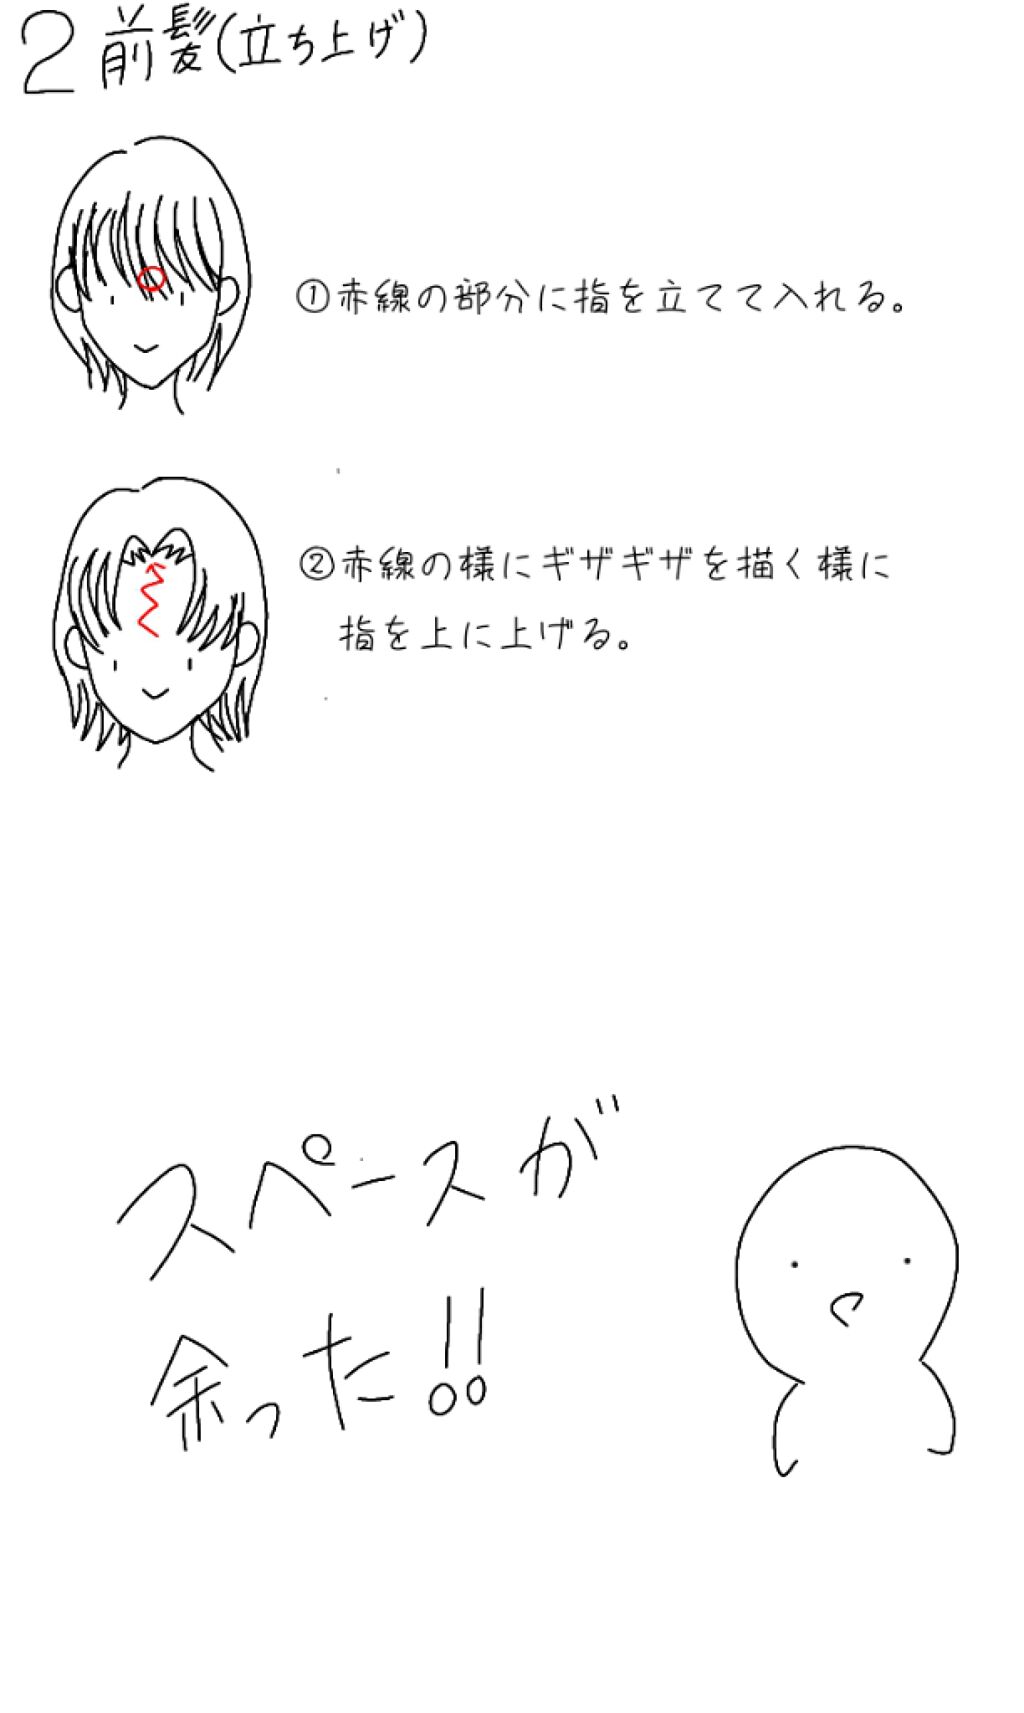 2 前髪(立ち上げ)
①赤線の部分に指を立てて入れる。
②赤線の様にギザギザを描く様に
指を上に上げる。
スペースが
余った!!